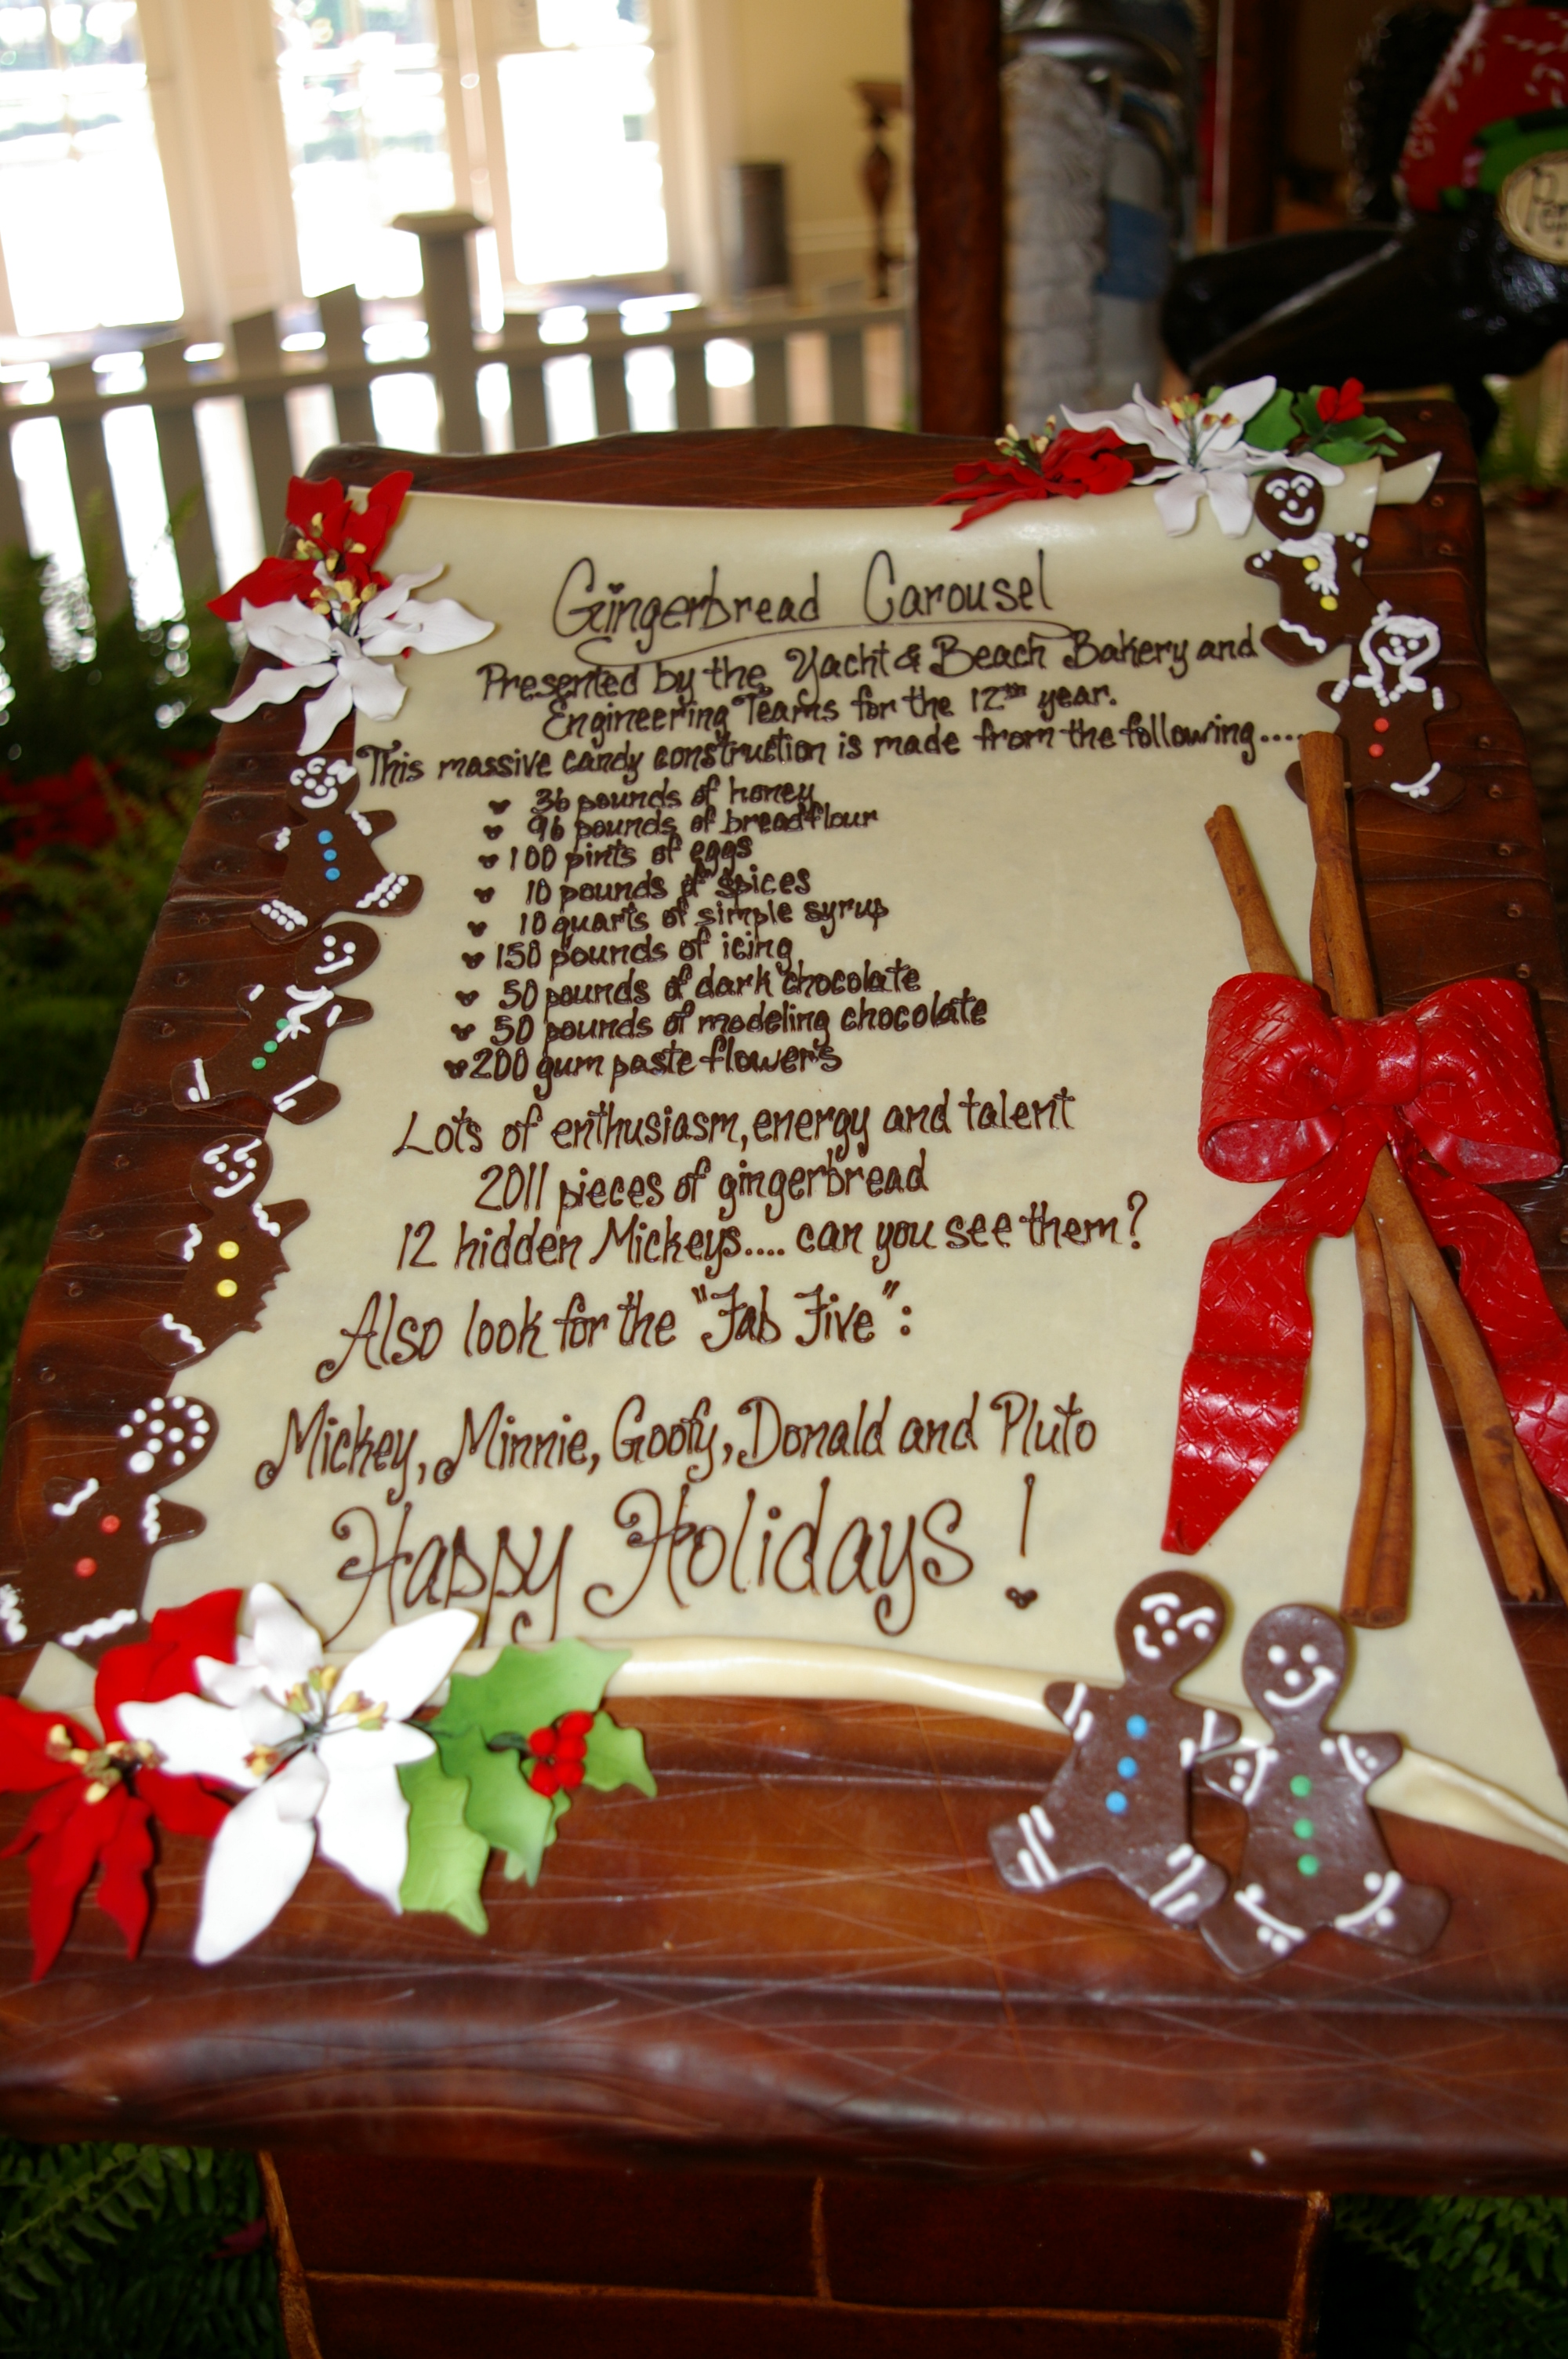 Gingerbread Carousel
Presented by the Yacht & Beach Bakery and
Engineering Teams for the 12th year.
This massive candy construction is made from the following....
36 pounds of honey
96 pounds of breadflour
100 pints of eggs
10 pounds of spices
10 quarts of simple syrup
150 pounds of icing
50 pounds of dark chocolate
50 pounds of modeling chocolate
200 gum paste flowers
Lots of enthusiasm, energy and talent
2011 pieces of gingerbread
12 hidden Mickeys.... can you see them?
Also look for the "Fab Five":
Mickey, Minnie, Goofy, Donald and Pluto
Happy Holidays!